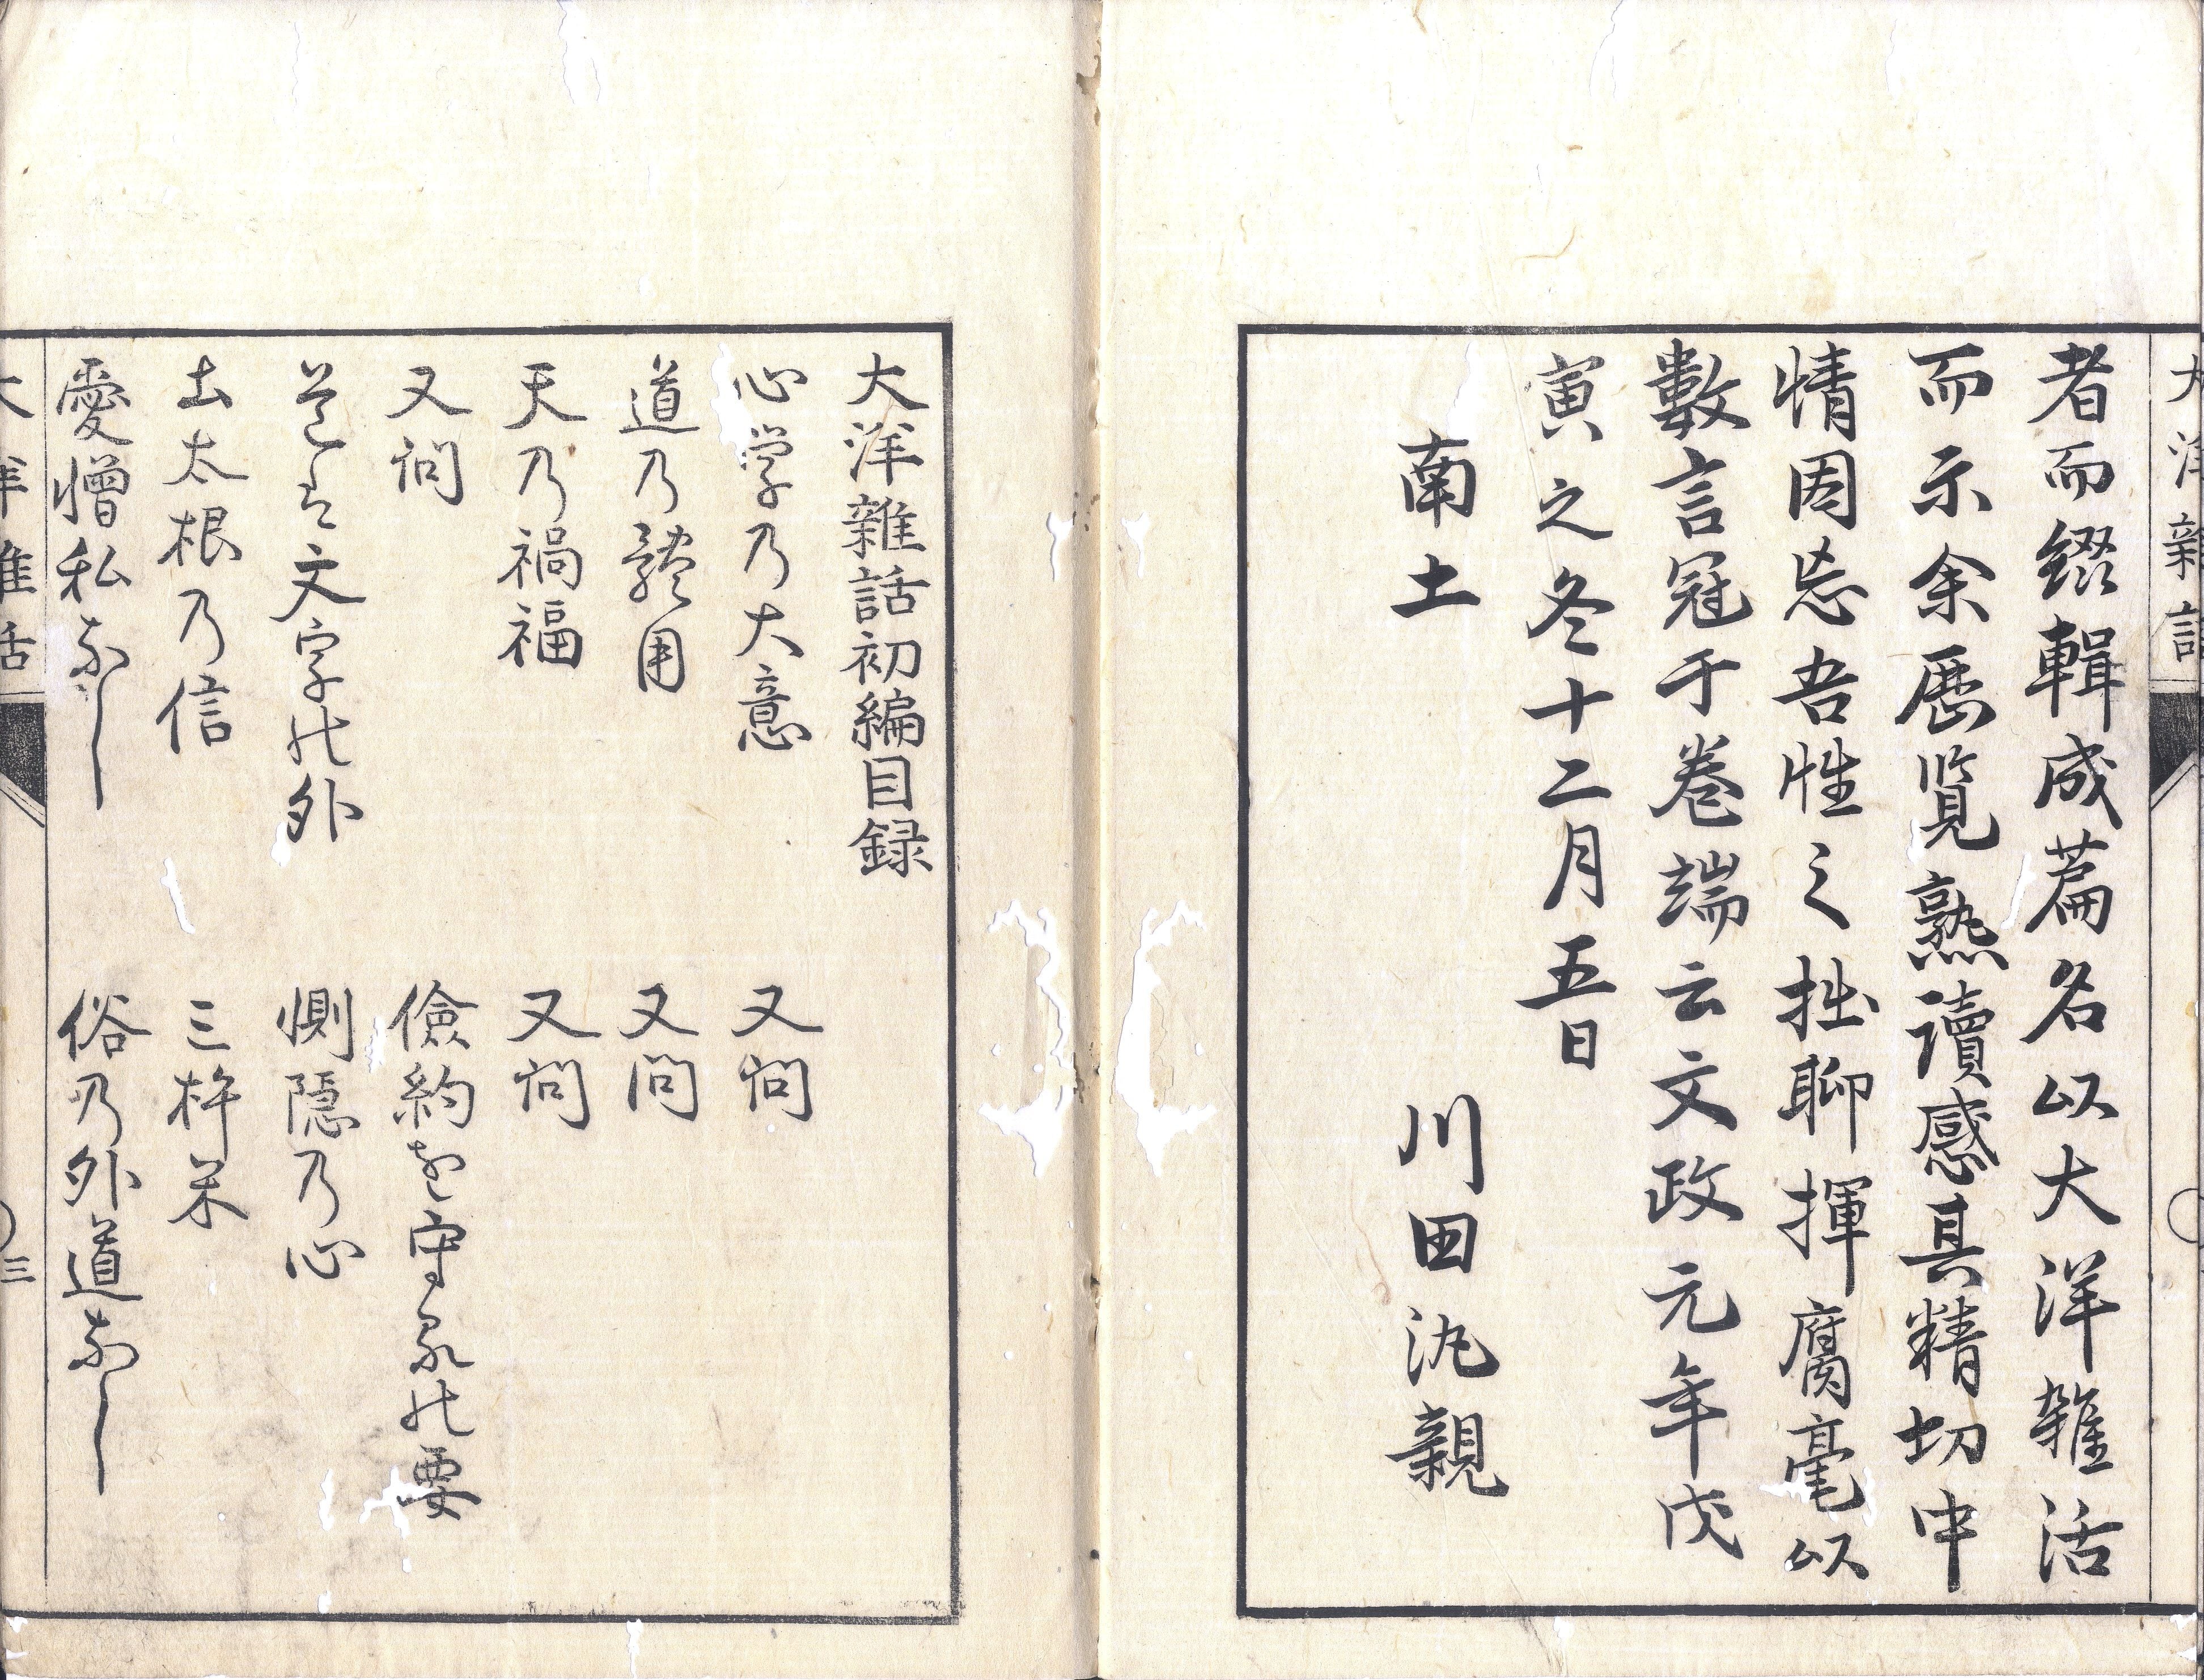 大洋雜話
者而綴輯成篇名以大洋雑活
而示余歴覧熟讀感其精切中
情因忘吾性之拙聊揮腐毫以
數言冠于巻端云文政元年戊
寅之冬十二月五日
南土　川田汎親
大洋雜話初編目録
心学乃大意　又問
道乃體用　又問
天乃禍福　又問
又問　儉約を守るの要
道は文字の外　惻隠乃心
太根乃信　三杵米
愛憎私なし　俗乃外道なし
大洋雜話　三